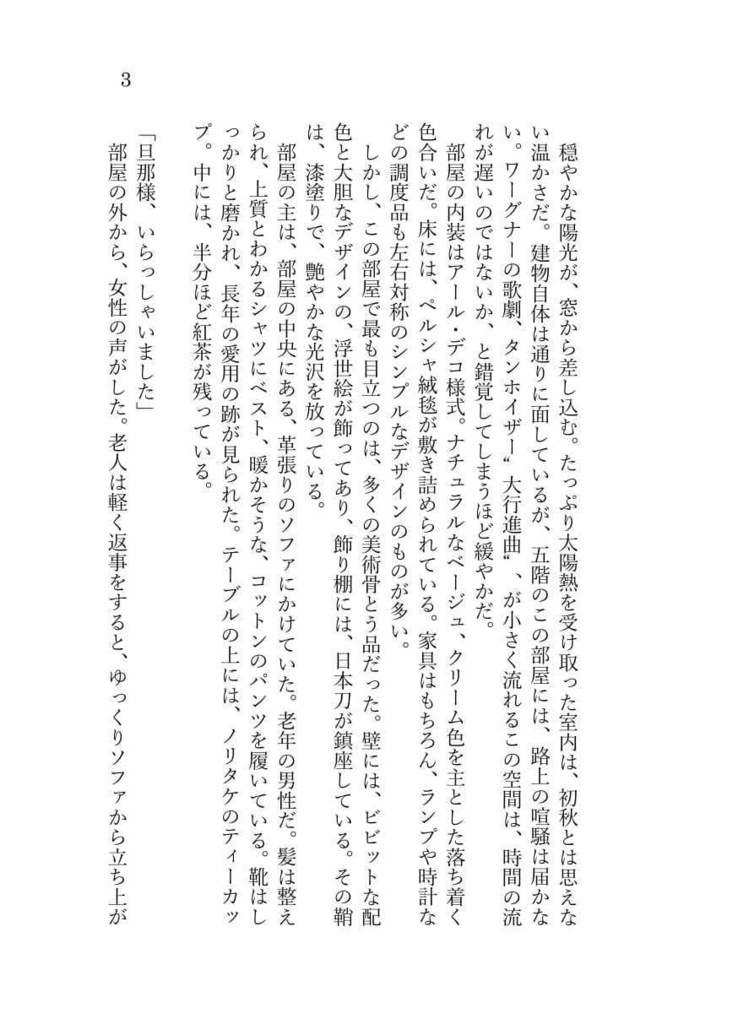 穏やかな陽光が、窓から差し込む。たっぷり太陽熱を受け取った室内は、初秋とは思えな
い温かさだ。建物自体は通りに面しているが、五階のこの部屋には、路上の喧騒は届かな
い。ワーグナーの歌劇、タンホイザー“大行進曲“、が小さく流れるこの空間は、時間の流
れが遅いのではないか、と錯覚してしまうほど緩やかだ。
部屋の内装はアール・デコ様式。ナチュラルなベージュ、クリーム色を主とした落ち着く
色合いだ。床には、ペルシャ絨毯が敷き詰められている。家具はもちろん、ランプや時計な
どの調度品も左右対称のシンプルなデザインのものが多い。
しかし、この部屋で最も目立つのは、多くの美術骨とう品だった。壁には、ビビットな配
色と大胆なデザインの、浮世絵が飾ってあり、飾り棚には、日本刀が鎮座している。その鞘
は、漆塗りで、艶やかな光沢を放っている。
部屋の主は、部屋の中央にある、革張りのソファにかけていた。老年の男性だ。髪は整え
られ、上質とわかるシャツにベスト、暖かそうな、コットンのパンツを履いている。靴はし
っかりと磨かれ、長年の愛用の跡が見られた。テーブルの上には、ノリタケのティーカッ
プ。中には、半分ほど紅茶が残っている。
「旦那様、いらっしゃいました」
部屋の外から、女性の声がした。老人は軽く返事をすると、ゆっくりソファから立ち上が
3